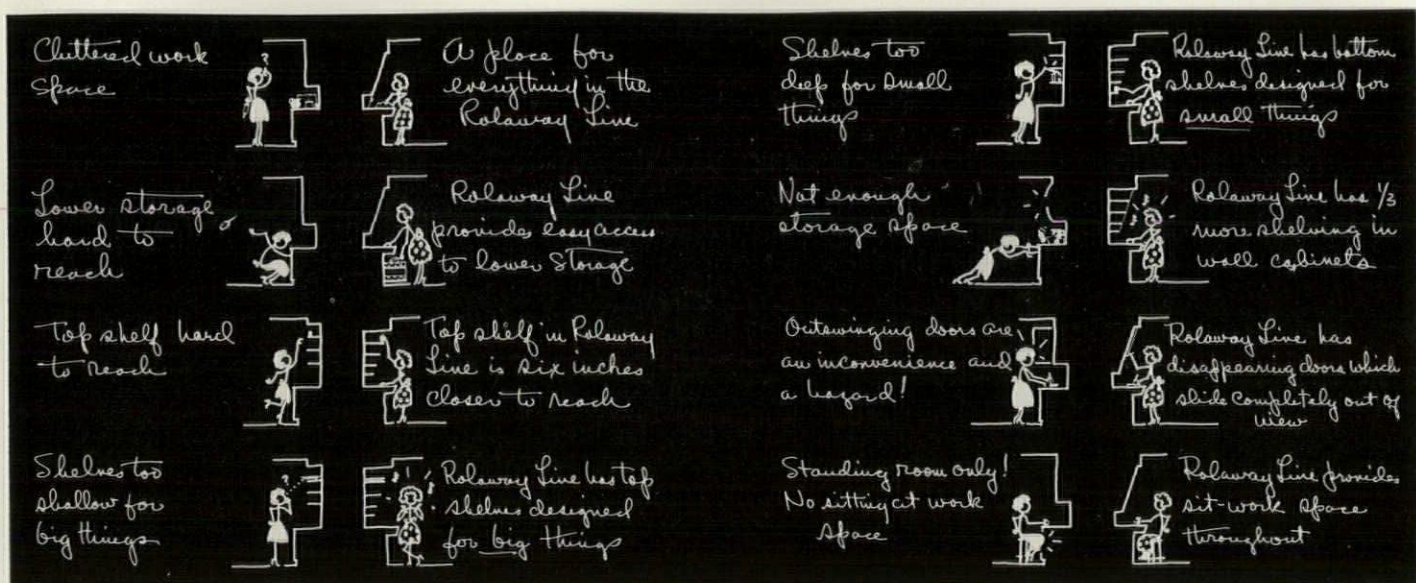 Cluttered work
space
A place for
everything in the
Rolaway Line
Lower storage
hard to
reach
Rolaway Line
provides easy access
to lower storage
Top shelf hard
to reach
Top shelf in Rolaway
Line is six inches
closer to reach
Shelves too
shallow for
big things
Rolaway Line has top
shelves designed
for big things
Shelves too
deep for small
things
Rolaway Line has bottom
shelves designed for
small things
Not enough
storage space
Rolaway Line has 1/3
more shelving in
wall cabinets
Outswinging doors are
an inconvenience and
a hazard!
Rolaway Line has
disappearing doors which
slide completely out of
view
Standing room only!
No sitting at work
space
Rolaway Line provides
sit-work space
throughout